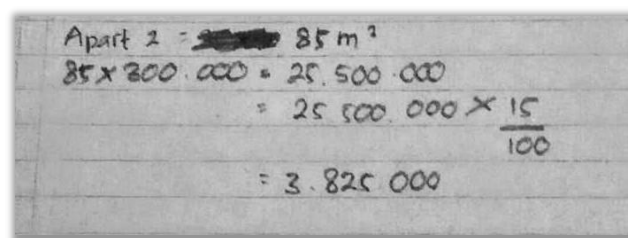 Apart 2 = 85 m²
85 × 300.000 = 25.500.000
= 25 500.000 × 15/100
= 3.825 000